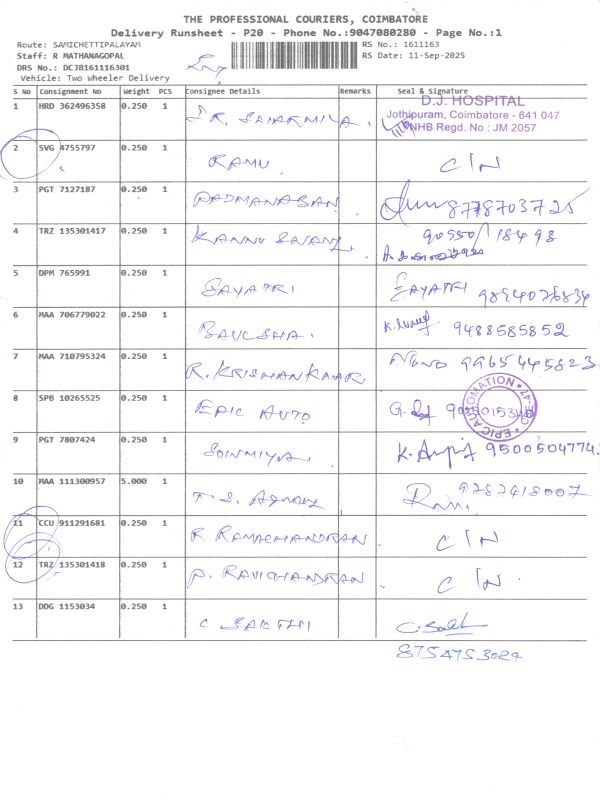 THE PROFESSIONAL COURIERS, COIMBATORE
Delivery Runsheet - P20 - Phone No.:9047080280 - Page No.:1
Route: SAMICHETTIPALAYAM RS No.: 1611163
Staff: R MATHANAGOPAL RS Date: 11-Sep-2025
DRS No.: DCJB161116301
Vehicle: Two Wheeler Delivery
S No Consignment No Weight PCS Consignee Details Remarks Seal & Signature
D.J. HOSPITAL
1 HRD 362496358 0.250 1 DR. SHARMILA. Jothipuram, Coimbatore - 641 047
NHB Regd. No : JM 2057
2 SVG 4755797 0.250 1 RAMU C/N
3 PGT 7127187 0.250 1 PADMANABAN 8778703725
4 TRZ 135301417 0.250 1
5 DPM 765991 0.250 1 GAYATRI GAYATRI
6 MAA 706779022 0.250 1 9488585852
7 MAA 710795324 0.250 1 9965445823
8 SPB 10265525 0.250 1 EPIC AUTO EPIC AUTOMATION CBE-47
9 PGT 7807424 0.250 1 SOWMIYA. 9500504774.
10 MAA 111300957 5.000 1 9282418007
11 CCU 911291681 0.250 1 R RAMACHANDRAN C/N
12 TRZ 135301418 0.250 1 P. RAVICHANDRAN C/N
13 DDG 1153034 0.250 1 C SAKTHI C. Sakthi
8754753024